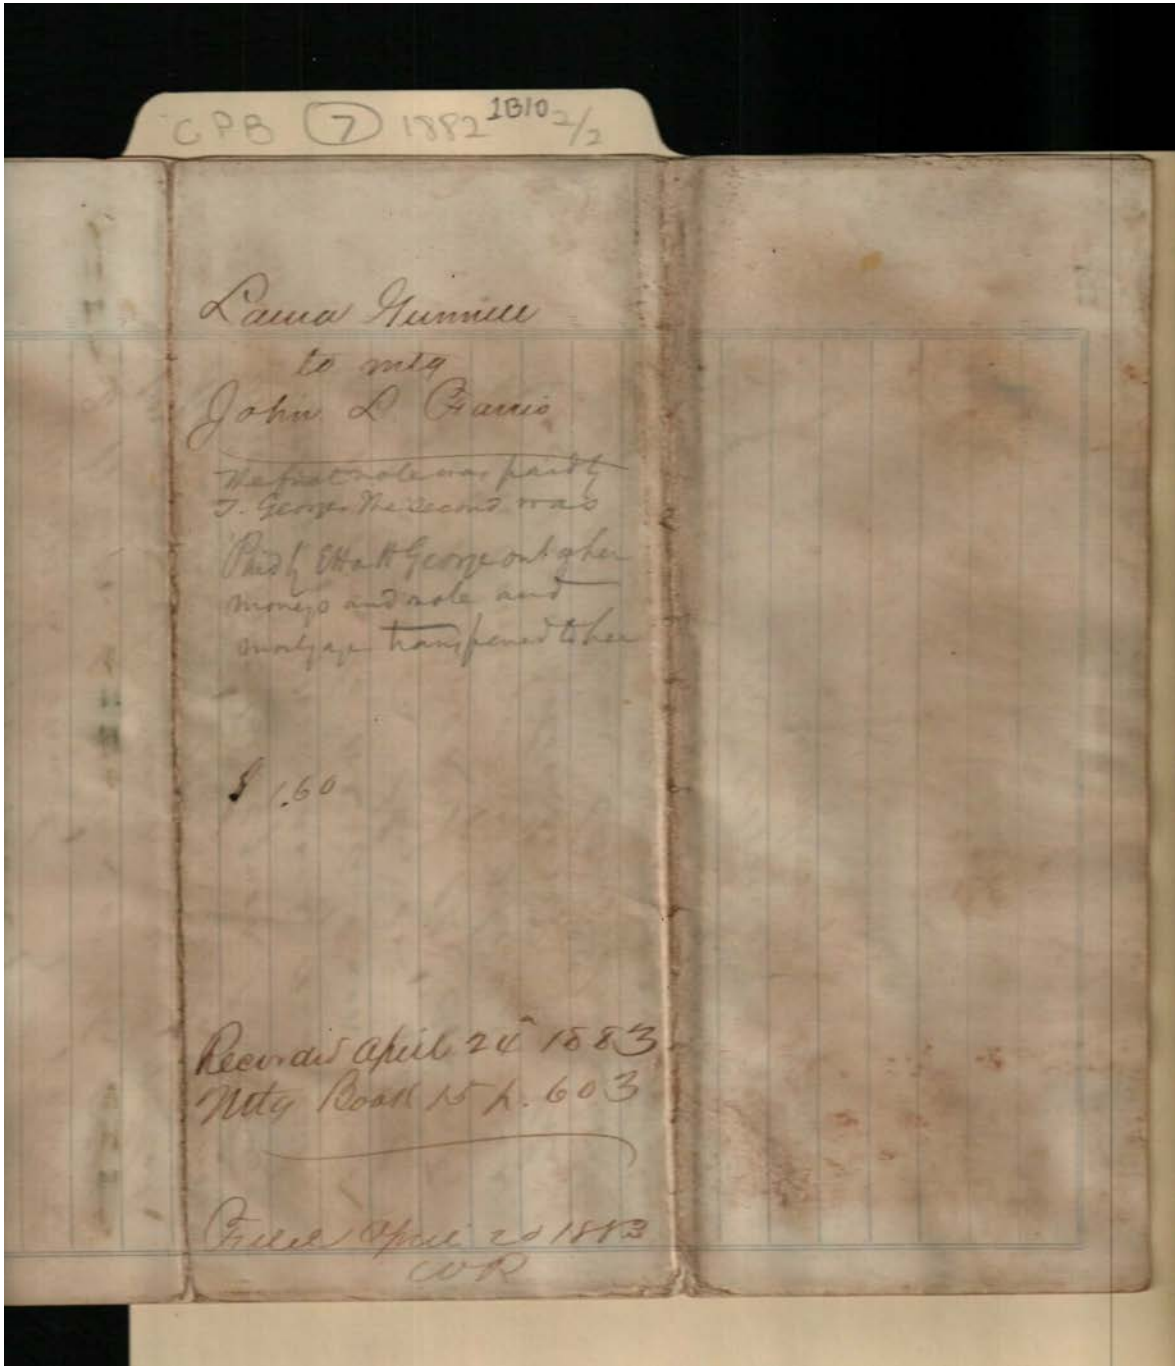 CPB 7 1882 1B10 2/2
Laura
to mtg
John L.
The first note was paid by
T. George The Second was
Paid by Etta H George out of her
moneys and note and
mortgage transfered to her
$ 1.60
Recorded April 24" 1883
Mtg Book 15 p. 603
Filed April 20 1883